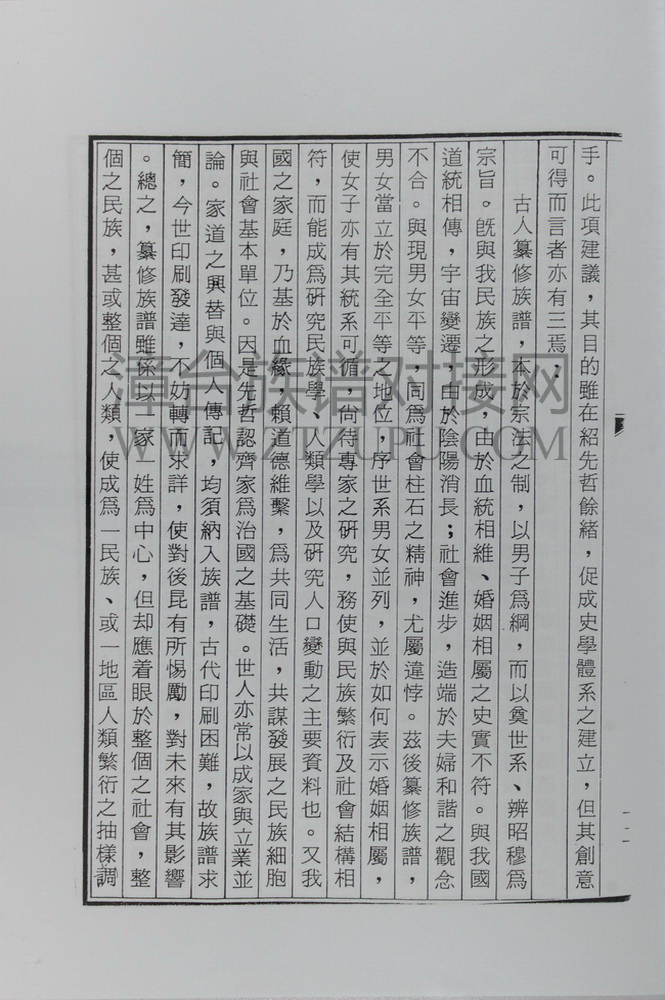 手。此項建議，其目的雖在紹先哲餘緒，促成史學體系之建立，但其創意
可得而言者亦有三焉：
古人纂修族譜，本於宗法之制，以男子爲綱，而以奠世系、辨昭穆爲
宗旨。旣與我民族之形成，由於血統相維、婚姻相屬之史實不符。與我國
道統相傳，宇宙變遷，由於陰陽消長；社會進步，造端於夫婦和諧之觀念
不合。與現男女平等，同爲社會柱石之精神，尤屬違悖。茲後纂修族譜，
男女當立於完全平等之地位，序世系男女並列，並於如何表示婚姻相屬，
使女子亦有其統系可循，尙待專家之硏究，務使與民族繁衍及社會結構相
符，而能成爲硏究民族學、人類學以及硏究人口變動之主要資料也。又我
國之家庭，乃基於血緣，賴道德維繫，爲共同生活，共謀發展之民族細胞
與社會基本單位。因是先哲認齊家爲治國之基礎。世人亦常以成家與立業並
論。家道之興替與個人傳記，均須納入族譜，古代印刷困難，故族譜求
簡，今世印刷發達，不妨轉而求詳，使對後昆有所惕勵，對未來有其影響
。總之，纂修族譜雖係以一家一姓爲中心，但却應着眼於整個之社會，整
個之民族，甚或整個之人類，使成爲一民族、或一地區人類繁衍之抽樣調
一二
潭台族谱对接网
WWW.ZTZUPU.COM